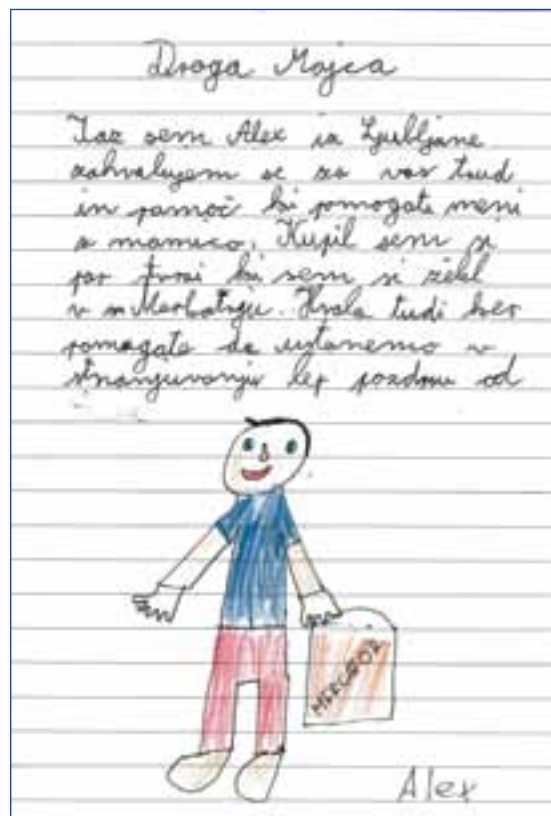 Droga Mojca
Jaz sem Alex iz Ljubljane
zahvalujem se za vas trud
in pamoč ki pomogate meni
z mamico. Kupil sem si
par stvari ki sem si želel
v Hvala tudi ker
pomagate da ustanemo v
stnanjuvanju lep pozdrav od
MERCATOR
Alex